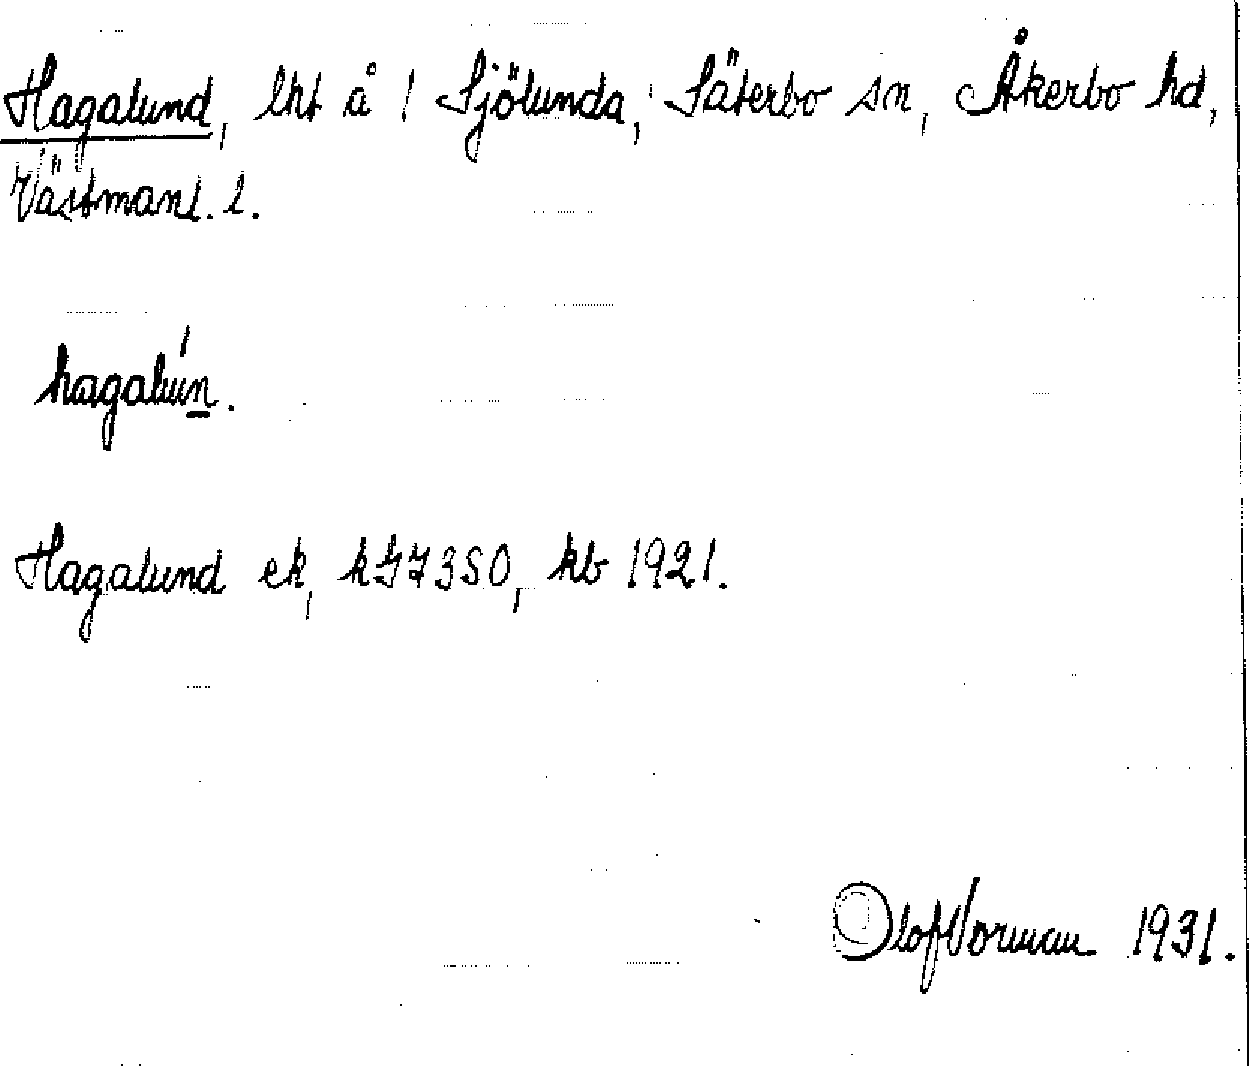 Hagalund, lht å 1 Sjölunda, Säterbo sn, Åkerbo hd,
Västmanl. l.
hagalún.
Hagalund ek, k 57350, kb 1921.
Olof Vorman 1931.